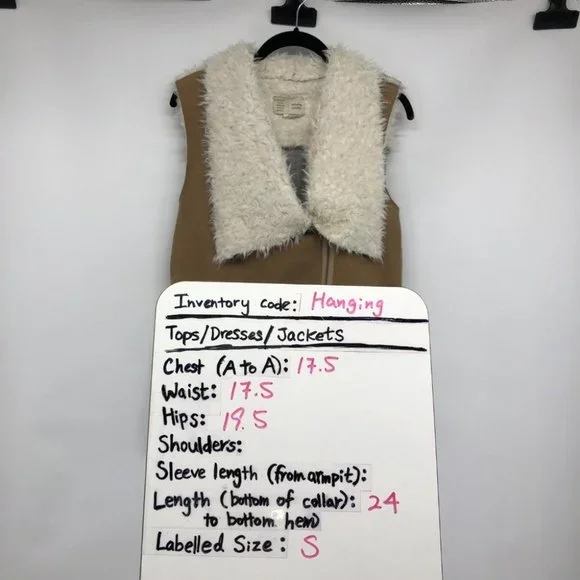 Inventory code: Hanging
Tops/Dresses/Jackets
Chest (A to A): 17.5
Waist: 17.5
Hips: 19.5
Shoulders:
Sleeve length (from armpit):
Length (bottom of collar): 24
to bottom hem)
Labelled Size: S